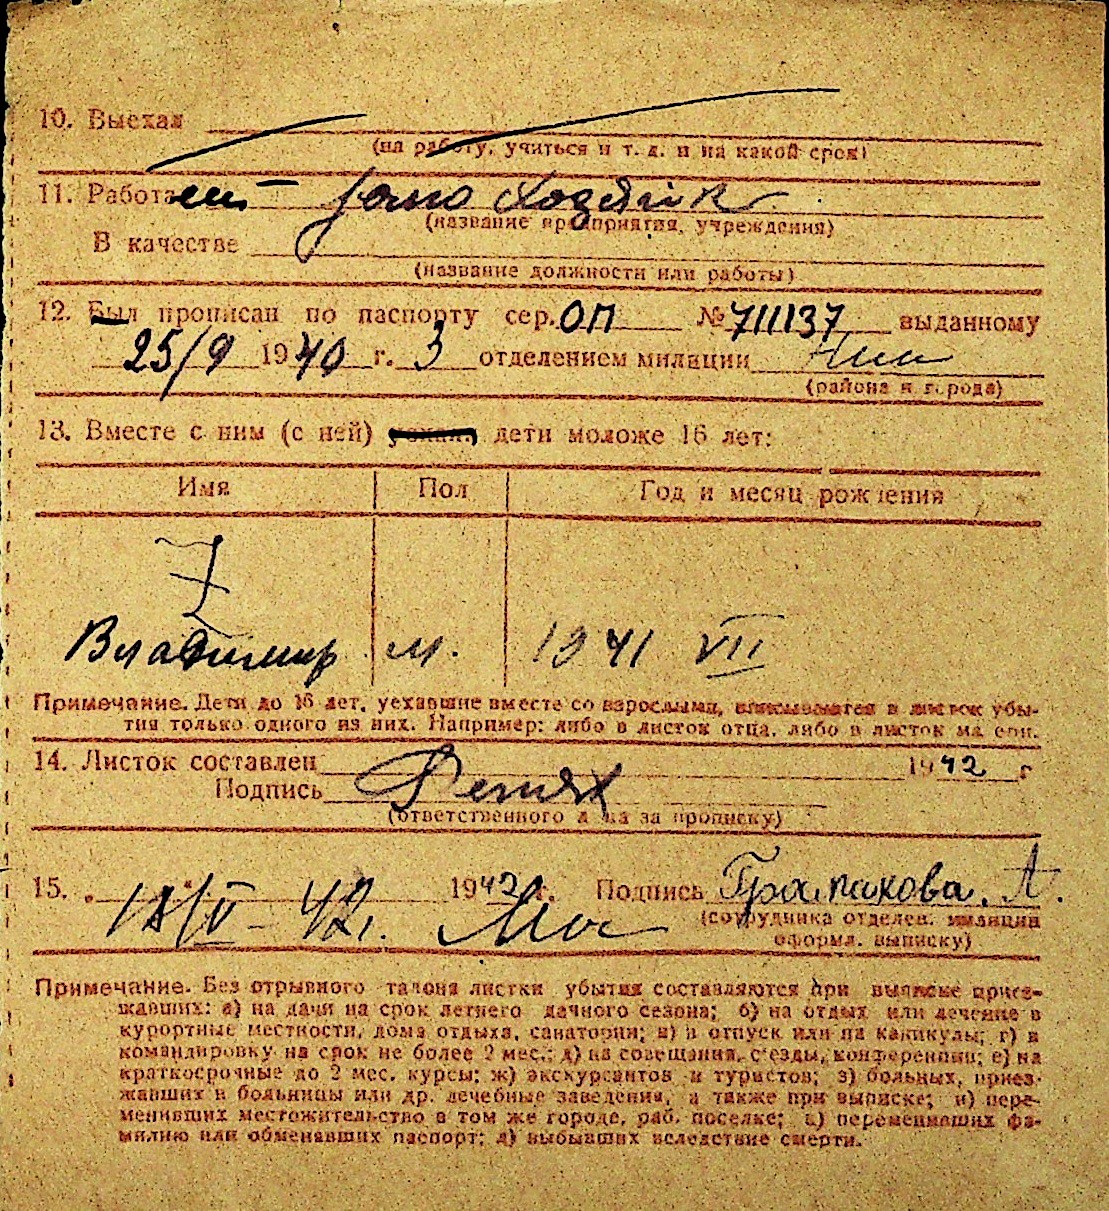 10. Выехал
(на работу, учиться и т. д. и на какой срок)
11. Работает - домо хозяйк
(название предприятия, учреждения)
В качестве
(название должности или работы)
12. Был прописан по паспорту сер. ОП № 711137 выданному
25/9 1940 г. 3 отделением милации
(района и города)
13. Вместе с ним (с ней) дети моложе 16 лет:
Имя Пол Год и месяц рождения
Владимир м. 1941 VII
Примечание. Дети до 16 лет, уехавшие вместе со взрослыми, вписываются в листок убы-
тия только одного из них. Например: либо в листок отца, либо в листок матери.
14. Листок составлен 1942 г
Подпись
(ответственного лица за прописку)
15. 1942 г. Подпись Грапакова. А.
18/V - 42.
(сотрудника отделен. милиции
оформл. выписку)
Примечание. Без отрывного талона листки убытия составляются при выписке приез-
жавших: а) на дачи на срок летнего дачного сезона; б) на отдых или лечение в
курортные местности, дома отдыха, санатории; в) в отпуск или на каникулы; г) в
командировку на срок не более 2 мес.; д) на совещания, с'езды, конференции; е) на
краткосрочные до 2 мес. курсы; ж) экскурсантов и туристов; з) больных, приез-
жавших в больницы или др. лечебные заведения, а также при выписке; и) пере-
менивших местожительство в том же городе, раб. поселке; к) переменивших фа-
милию или обменявших паспорт; л) выбывших вследствие смерти.